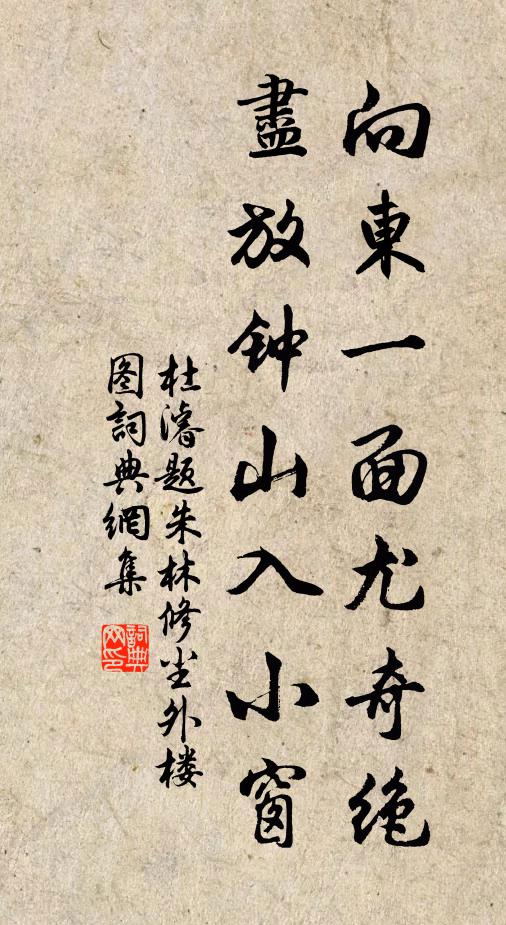 向東一面尤奇絶
盡放钟山入小窗
杜濬题朱林修尘外楼
图詞典網集
詞典
网印